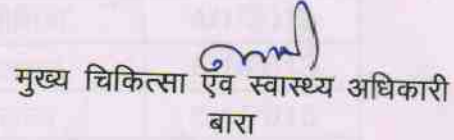 मुख्य चिकित्सा एव स्वास्थ्य अधिकारी
बारा